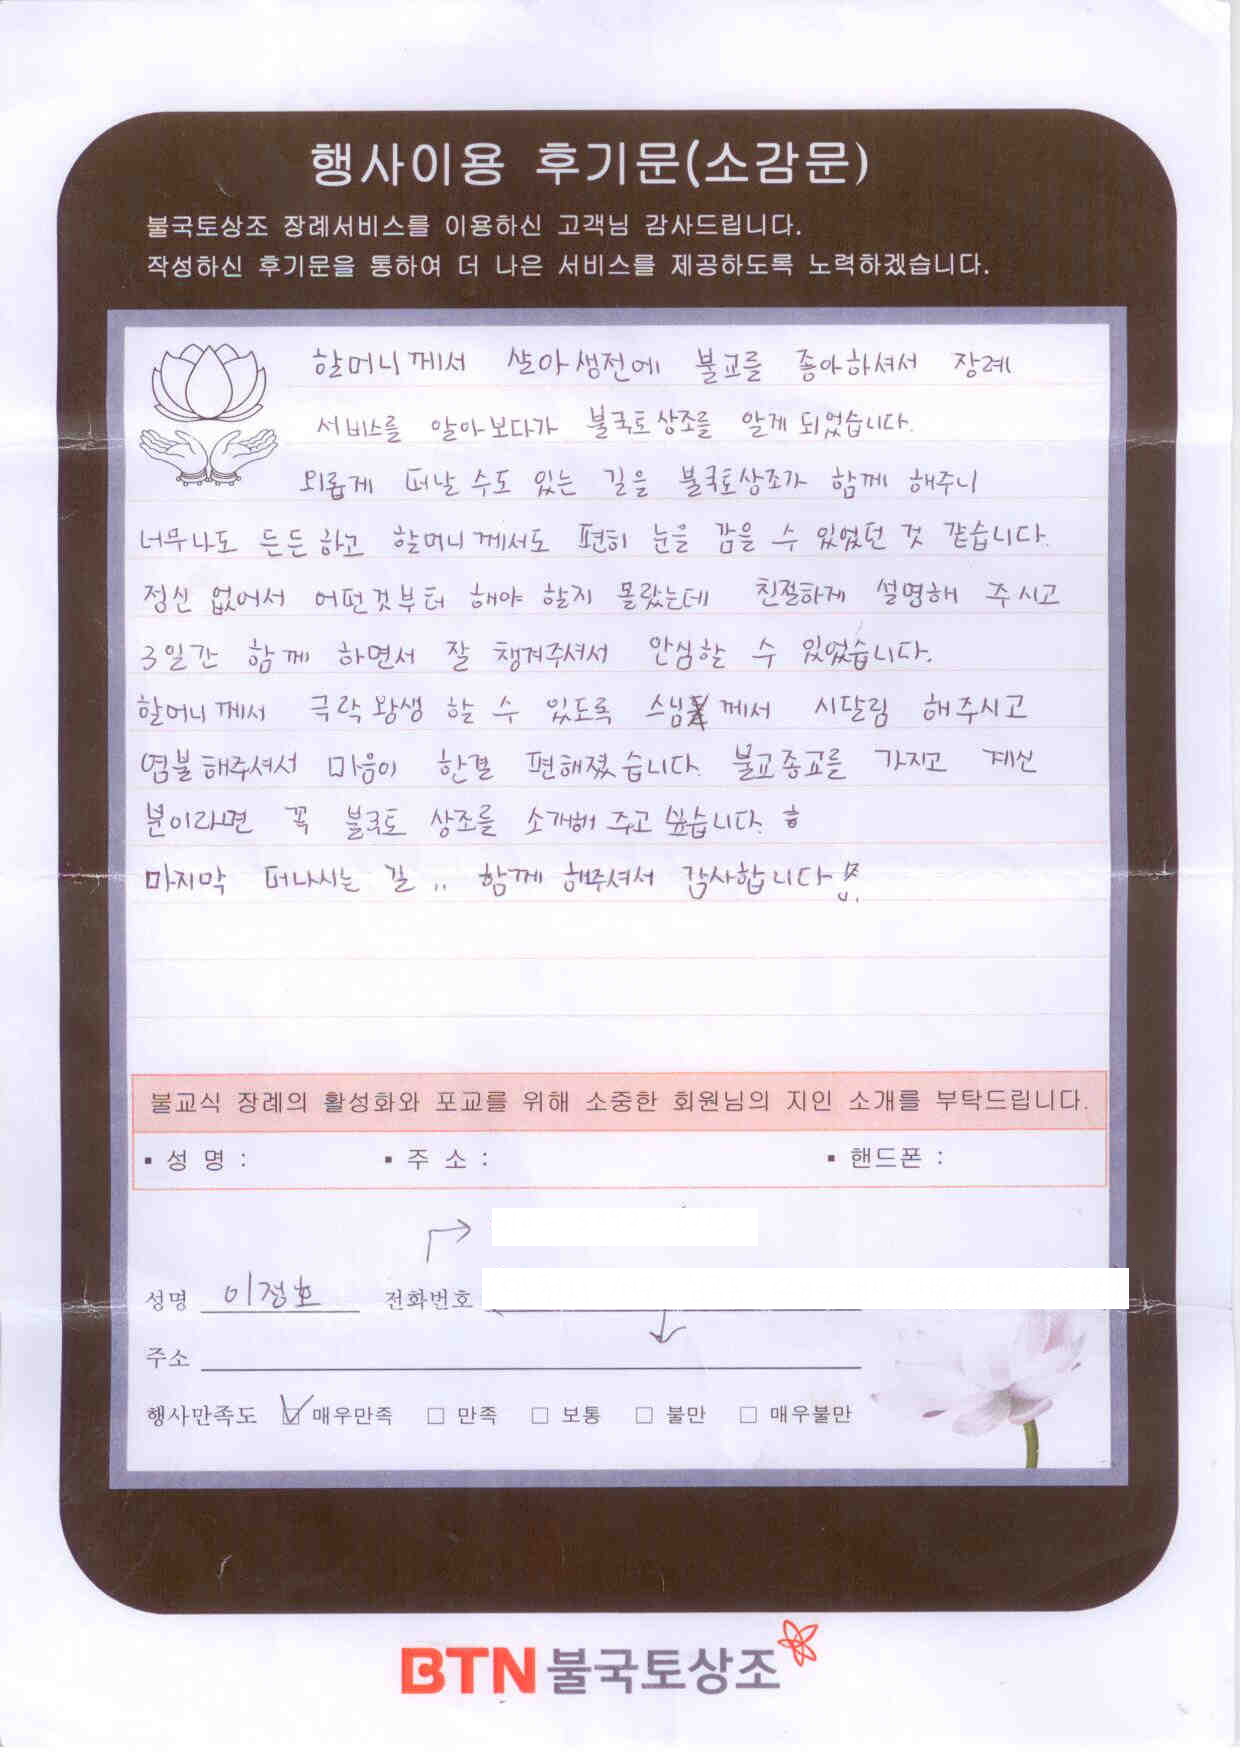 행사이용 후기문(소감문)
불국토상조 장례서비스를 이용하신 고객님 감사드립니다.
작성하신 후기문을 통하여 더 나은 서비스를 제공하도록 노력하겠습니다.
할머니께서 살아생전에 불교를 좋아하셔서 장례
서비스를 알아보다가 불국토상조를 알게 되었습니다.
외롭게 떠날 수도 있는 길을 불국토상조가 함께 해주니
너무나도 든든하고 할머니께서도 편히 눈을 감을 수 있었던 것 같습니다.
정신 없어서 어떤것부터 해야 할지 몰랐는데 친절하게 설명해 주시고
3일간 함께 하면서 잘 챙겨주셔서 안심할 수 있었습니다.
할머니께서 극락왕생 할 수 있도록 스님께서 시달림 해주시고
염불해주셔서 마음이 한결 편해졌습니다. 불교종교를 가지고 계신
분이라면 꼭 불국토 상조를 소개해 주고 싶습니다. ㅎ
마지막 떠나시는 길.. 함께 해주셔서 감사합니다
불교식 장례의 활성화와 포교를 위해 소중한 회원님의 지인 소개를 부탁드립니다.
▪ 성 명 : ▪ 주 소 : ▪ 핸드폰 :
성명 이정호 전화번호
주소
행사만족도 ☑ 매우만족 □ 만족 □ 보통 □ 불만 □ 매우불만
BTN 불국토상조